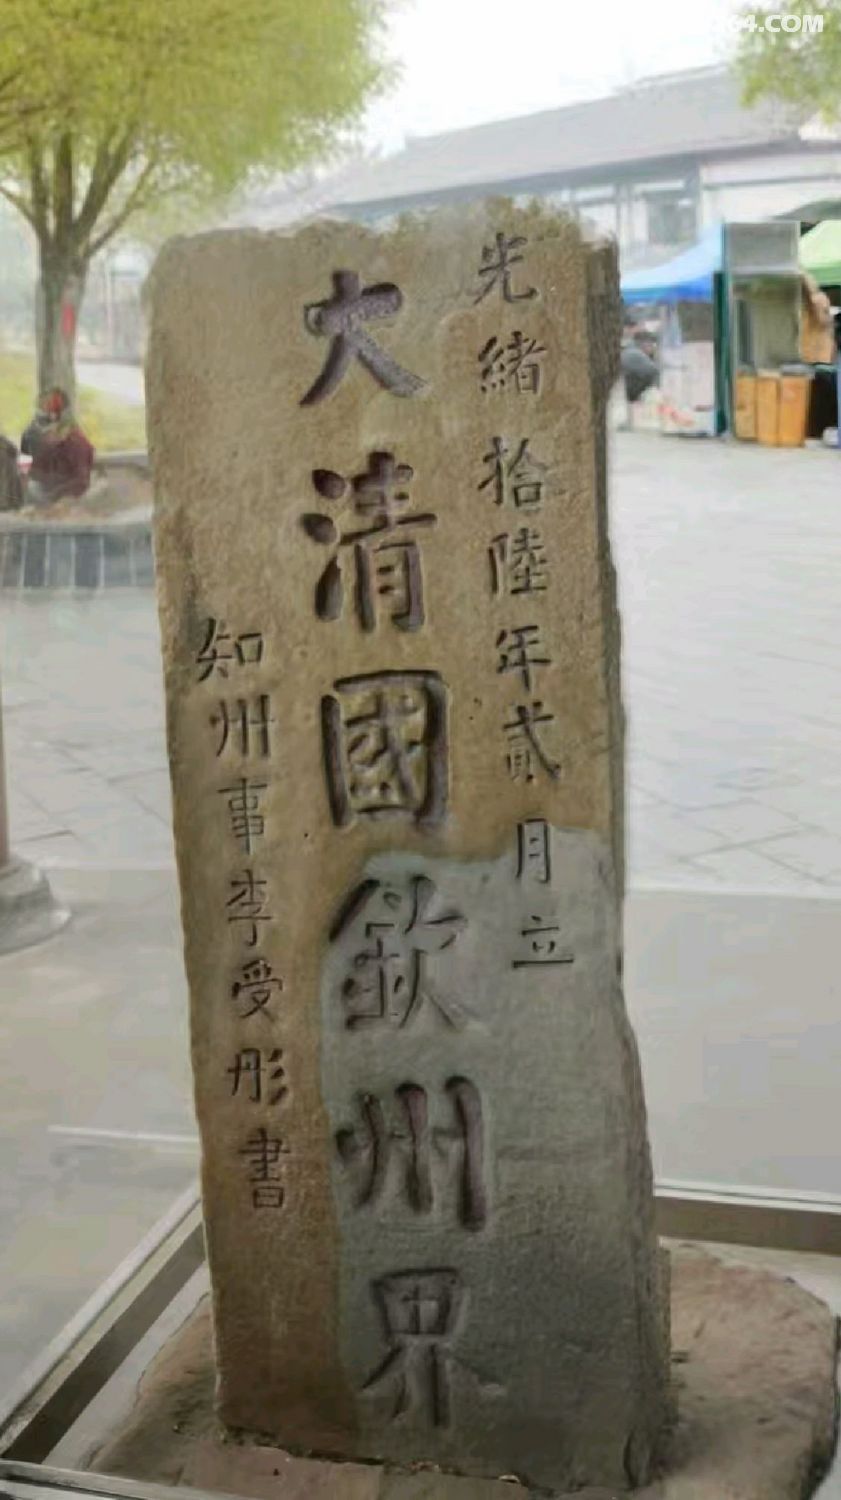 光緒拾陸年貳月立
大清國欽州界
知州事李受彤書
64.COM